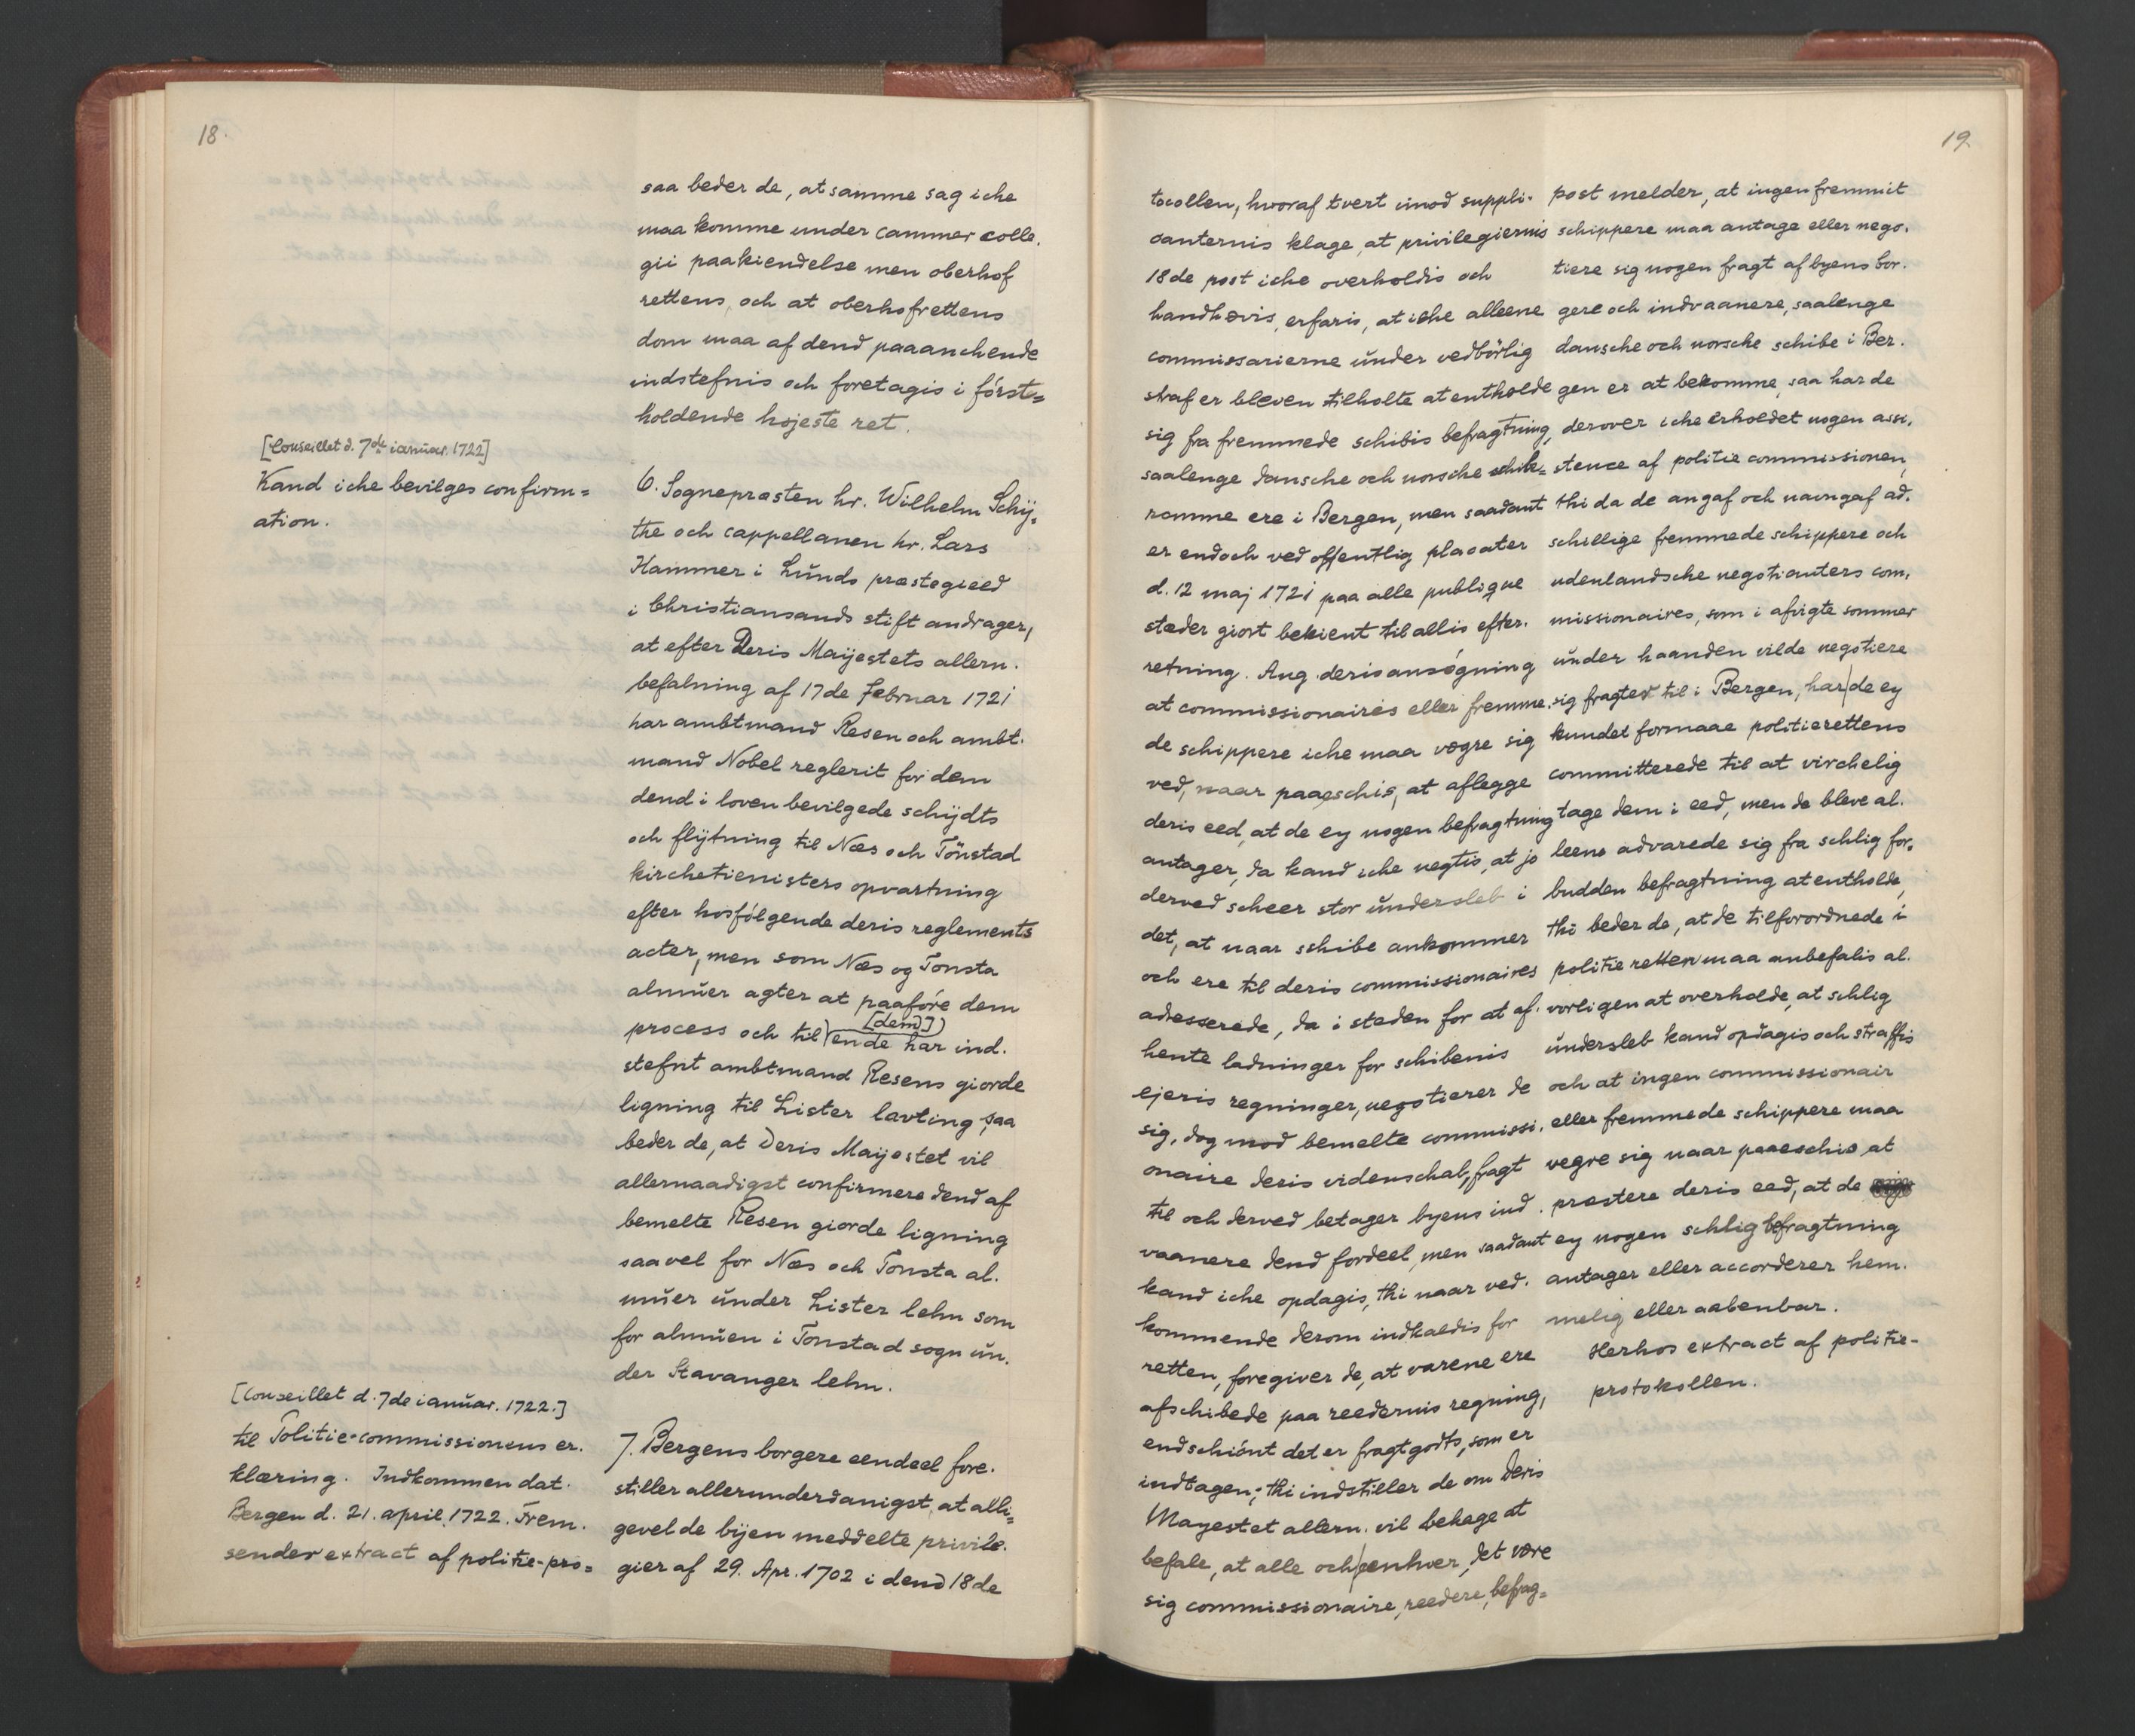 18.
saa beder de, at samme sag iche
maa komme under cammer colle.
gii paakiendelse men oberhof
rettens, och at oberhofrettens
dom maa af dend paaanchende
indstefnis och foretagis i först=
holdende højeste ret.
[Conseillet d. 7de ianŭar. 1722]
Kand iche bevilges confirm=
ation.
6. Sognepræsten hr. Wilhelm Schij=
the och cappellanen hr. Lars
Hammer i Lŭnds præstegieed
i Christiansands stift andrager,
at efter Deris Maijestets allern.
befalning af 17de Februar 1721
har ambtmand Resen och ambt.
mand Nobel reglerit for dem
dend i loven bevilgede schijdts
och flijtning til Næs och Tönstad
kirchetienisters opvartning
efter hosfölgende deris reglements
acter, men som Næs og Tonsta
almŭer agter at paaföre dem
process och til ende [dem] har ind.
stefnt ambtmand Resens giorde
ligning til Lister lavting, saa
beder de, at Deris Maijestet vil
allernaadigst confirmere dend af
bemelte Resen giorde ligning
saavel for Næs och Tonsta al.
mŭer ŭnder Lister lehn som
for almŭen i Tonstad sogn ŭn.
der Stavanger lehn.
[Conseillet d. 7de ianŭar. 1722.]
til Politie-commissionens er.
klæring. Indkommen dat.
Bergen d. 21. april 1722. Frem.
sender extract af politie-pro=
7. Bergens borgere eendeel fore.
stiller allerunderdanigst, at alli=
gevel de bijen meddelte privile.
gier af 29. Apr. 1702 i dend 18de
19.
tocollen, hvoraf tvert imod suppli.
canternis klage, at privilegiernis
18de post iche overholdis och
handhævis, erfaris, at iche alleene
commissarierne ŭnder vedbörlig
straf er bleven tilholte at entholde
sig fra fremmede schibis befragtning,
saalenge dansche och norsche schibs=
romme ere i Bergen, men saadant
er endoch ved offentlig placater
d. 12 maj 1721 paa alle publique
stæder giort bekient til allis efter.
retning. Ang. deris ansøgning
at commissionaires eller fremme.
de schippere iche maa vægre sig
ved, naar paaeschis, at aflegge
deris eed, at de ey nogen befragtning
antager, da kand iche negtis, at jo
derved scheer stor ŭndersleb i
det, at naar schibe ankommer
och ere til deris commissionaires
adesserede, da i steden for at af.
hente ladninger for schibenis
ejeris regninger, negotierer de
sig, dog mod bemelte commissi.
onaire deris videnschab, fragt
til och derved betager byens ind.
vaanere dend fordeel, men saadant
kand iche opdagis, thi naar ved.
kommende derom indkaldis for
retten, foregiver de, at varene ere
afschibede paa reedernis regning,
endschiönt det er fragtgodts, som er
indtagen; thi indstiller de om Deris
Mayestet allern. vil behage at
befale, at alle och eenhver, det være
sig commissionaire, reedere, befrag=
post melder, at ingen fremmit
schippere maa antage eller nego.
tiere sig nogen fragt af byens bor.
gere och indvaanere, saalenge
dansche och norsche schibe i Ber.
gen er at bekomme, saa har de
derover iche erholdet nogen assi.
stence af politie commissionen,
thi da de angaf och navngaf ad.
schillige fremmede schippere och
udenlandsche negotianters com.
missionaires, som i afvigte sommer
ŭnder haanden vilde negotiere
sig fragter til i Bergen, har de ey
kundet formaae politierettens
committerede til at virchelig
tage dem i eed, men de bleve al.
leene advarede sig fra schlig for.
budden befragtning at entholde,
thi beder de, at de tilforordnede i
politie retten maa anbefalis al.
vorligen at overholde, at schlig
ŭndersleb kand opdagis och straffis
och at ingen commissionair
eller fremmede schippere maa
vegre sig naar paaeschis, at
præstere deris eed, at de
ey nogen schlig befragtning
antager eller accorderer hem.
melig eller aabenbar.
Herhos extract af politie-
protokollen.